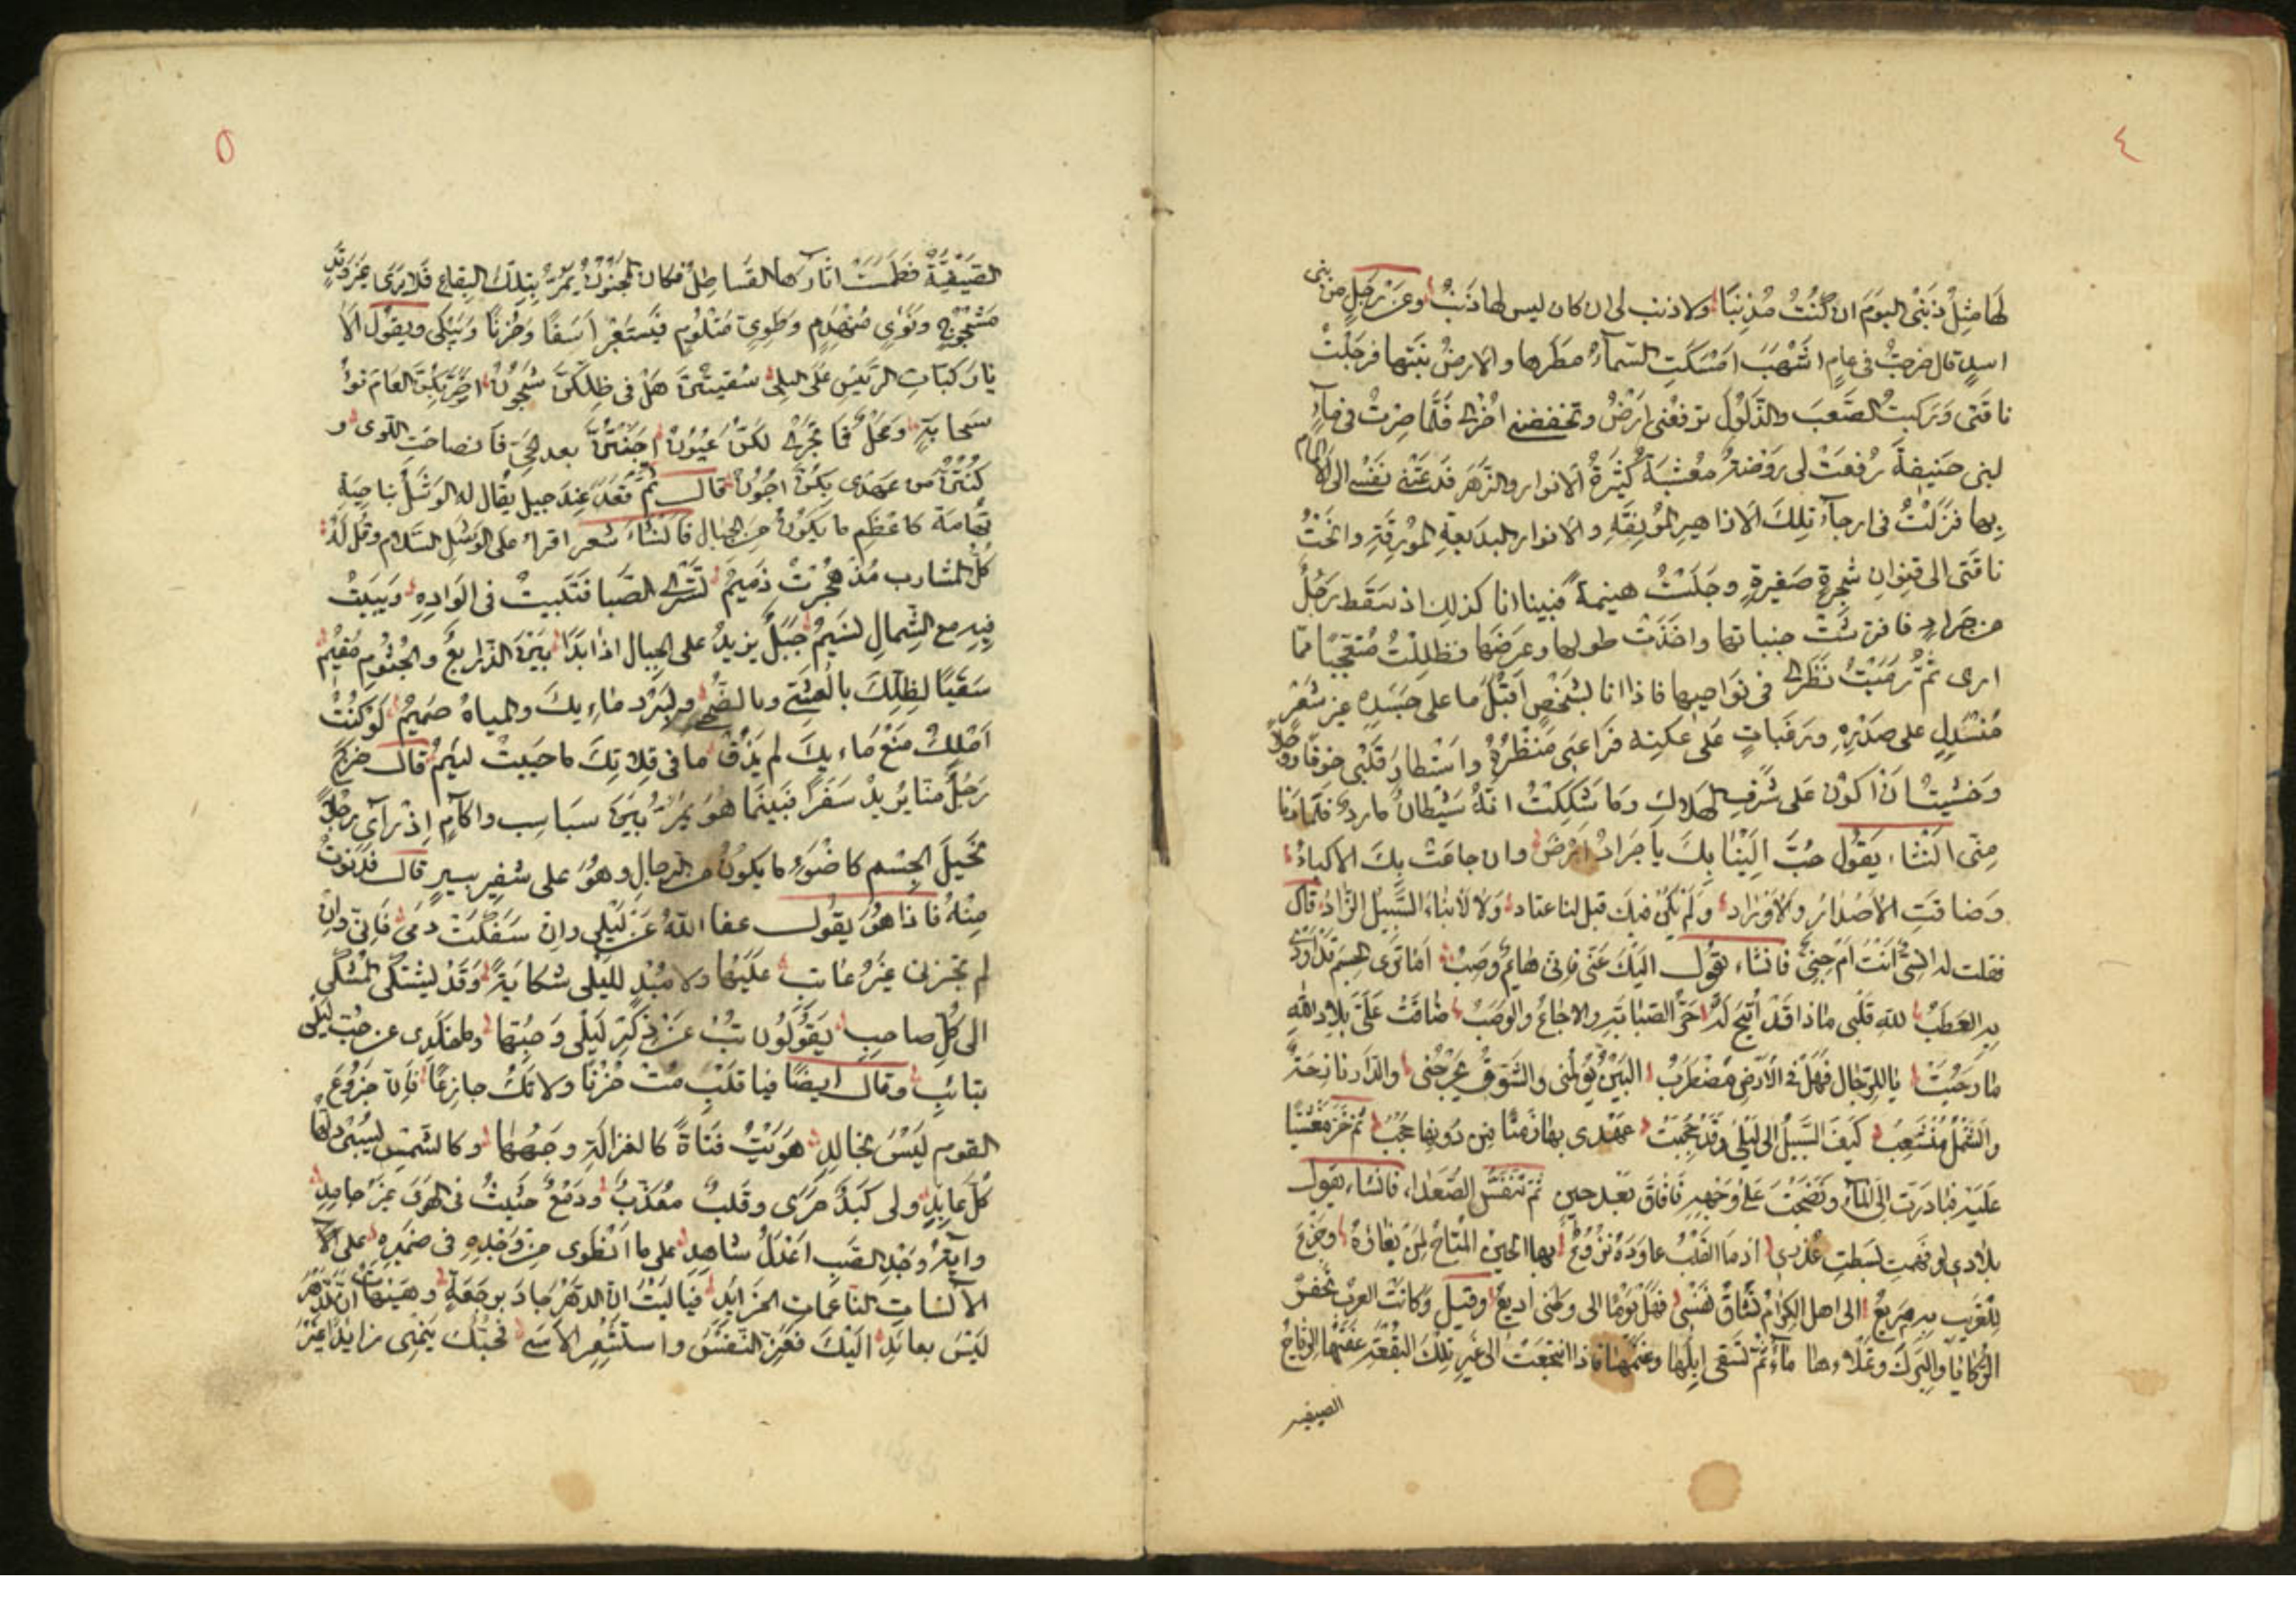 ٤
لَهَا مِثْلُ ذَنْبِىْ اليَوْمَ اِنْ كُنْتُ مُذْنِبًا ولا ذنب لى ان كان ليس لها ذَنْبُ وعَنْ رَجُلٍ من بنى
اسدٍ قال خرجتُ فى عامٍ اشْهَبَ امْسَكَتِ السَّمآءُ مطَرها والارضُ نبتها فرحَلْتُ
ناقتى وَركبتُ الصَّعبَ والذَّلُوْلَ ترفعُنى ارضٌ وتخفضنى اخْرٰى فَلَمَّا صِرْتُ فى مآءٍ
لبنى حنيفةَ رُفعَتْ لى رَوْضةٌ معْشبَةٌ كَثيْرَةُ الانوار والزَّهر فدعَتْنى نَفْسى الى الالمام
بِها فنزَلْتُ فى ارجآءِ تلِكَ الازاهيرِ المُوْنِقَةِ والانوار البديعةِ المُوْرِقَةِ وانَخْتُ
ناقتى الى قنوانِ شجرةٍ صَغيرةٍ وجلَسْتُ هينمةً فبينا انا كذلك اذ سَقَط رَجُلٌ
من جرادٍ فافترشَتْ جنباتها واخَذَتْ طولها وعرضها فظَلِلْتُ مُتعَجِّبًا مما
ارى ثُمَّ رَمَيْتُ نَظَرِىْ فى نَوَاحيها فاذا انا بشَخْصٍ اَقْبَلَ ما على جَسَدِهِ غير شَعْرٍ
مُنْسَدِلٍ على صَدْرِهِ ورَقَباتٍ على عكنِه فراعَنى مَنْظَرُهُ واسْتطارَ قَلْبى خوفًا ووجلًا
وَخَشيتُ اَنْ اكوْن عَلى شَرَفِ الهَلاكِ وَمَا شَكِكْتُ انّهُ شَيْطانٌ ماردٌ فلمّا دَنا
مِنّى انْشَاء يَقُول حُبَّ اِلَيْنٰا بِكَ يا جَرَادُ ارْضٌ وان جاعَتْ بِكَ الاكبادُ
وَضاقتِ الاَصْدارُ والاَوْرَادُ وَلَمْ يَكُنْ فيكَ قبل لنا عتاد وَلا لأبْناءِ السَّبِيْلِ الزَّادُ قال
فقلت له اِنْسِىٌّ اَنْتَ اَمْ جِنِىٌّ فانشاء يقُول اليْكَ عَنّى فاِنى هائِمٌ وَصِبٌ اَمَا تَرٰى الجِسْمَ قَدْ اَوْدٰى
بهِ العَطَبُ للهِ قَلْبى ماذا قَدْ اُتيْحَ لَهُ حَرُّ الصَّبابةِ والاوجاعُ والوَصَبُ ضاقتْ علَىَّ بلادُ اللهِ
ما رَحُبَتْ يا للرّجال فهَلْ فى الأرْضِ مُضْطَرَبُ البَيْنُ يُؤلمُنى والشَّوْقُ يَجْرَحُنى والدَّار نازحَةٌ
والشَّمْلُ مُنْشَعِبُ كَيْفَ السَّبيْلُ الى ليْلٰى وَقَدْ حُجِبَتْ عَهْدى بها زَمَنًا مِنْ دُونِها حجُبُ ثُمَّ خَرَّ مَغْشيًّا
عَلَيْهِ فبادَرْتُ اِلَى المآءِ ونَضَحْتُ عَلى وَجْهِهِ فاَفاقَ بَعْدَ حينٍ ثُمَّ تَنَفَّسَ الصُّعَداء فانشاء يَقُول
بلادى لو فهمتِ بسَطتِ عُذْرى اذ ما القَلْبُ عاوَدَهُ نُزُوعٌ بها الحَيْنُ المُتاحُ لِمَنْ بَغَاهُ وجزعٌ
للغَرِيب به مَرِيعُ الى اهل الكِرَام تشَاقُ نَفْسى فهَلْ يَوْمًا الى وطنى اريعُ وقيل وكانَتْ العربُ تحفِرُ
الرَّكايا والبِرَكَ وتَملاءها مآءً ثُمَّ تَسْقى اِبِلَها وغَنمَها فاذا انتجَعَتْ الى غيرِ تِلْكَ البُقْعَة عفَتْها الرِّياحُ
الصيفيه
٥
الصَيْفِيَّةُ فطَمَسَتْ آثارَها القَساطِلُ فكان المجنُوْنُ يَمُرُّ بتلِكَ البِقاع فَلا يَرَى غَيْرَ وَتَدٍ
مَشْجُوْجٍ ونُؤىٍ مُنْهَدِمٍ وطَوِىٍّ مَثلُومٍ فيَسْتَعْبِرُ اسَفًا وَحُزنًا وَيَبْكى ويقُوْل اَلا
يا ركباتِ الرَّسيْسِ عَلى البِلى سُقيْتُنَّ هَلْ فى ظِلِّكُنَّ شُجُوْنُ اَضَرَّ بكُنَّ العَامَ نوْءُ
سَحابَةٍ ومَحْلٌ فما تَجْرِى لكُنَّ عُيُوْنُ اَجَفَتْنَّ بعد الحَىِّ فانصاحَتِ اللّوى و
كُنْتُنَّ مِن عهدى بِكُنَّ اجُوْنُ قال ثمَّ قعَدَ عِندَ جبلٍ يقُال له الوَشَلُ بنا حِيَةِ
تِهَامَة كاعْظَمِ ما يَكُوْنُ مِنَ الجبال فانْشَاء شعر اقراء على الوَشَلِ السَّلام وقُل لَهُ
كُلُّ المشارب مُذْ هُجْرتَ ذَميْمُ تَسْرِى الصَّبا فتَبيتُ فى الوَادِهِ وَيَبيتُ
فيهِ مع الشِّمالِ نَسيْمُ جَبَلٌ يزيدُ على الجبال اذا بَدَا بَيْنَ الذرايع والجُثُومِ مُقيْمُ
سَقْيًا لظِلّكَ بالعَشِىّ وبالضُّحىٰ ولبَرْدِ ماءِيكَ والمياهُ حَميْمُ لَوْ كُنْتُ
اَمْلِكُ مَنْعَ مَاءِيكَ لم يَذُقْ ما فى قِلاتِكَ ما حَييتُ لئيمُ قال خرج
رَجُلٌ منّا يُريدُ سَفَرًا فبَيْنَما هُوَ يَمُرُّ بَيْنَ سبَاسِب واكآمٍ اِذْ رآى رجُلًا
نحَيلَ الجِسْمِ كاضْوَءِ ما يكونُ مِن الرجالِ وهُوَ على شفير بيرٍ قال فدَنَوْتُ
مِنْهُ فاذا هُوَ يَقُول عفا اللهُ عَنْ لَيْلٰى وان سَفَكَتْ دَمى فاِنّى وان
لم تجزنى غيْرُ عاتبٍ علَيْها ولا مُبْدٍ لليْلٰى شكايةً وَقَدْ يشْتكى المُشْكى
الى كلِّ صاحبِ يَقُوْلُوْن تُبْ عَنْ ذِكرِ لَيْلٰى وَحُبِّها وما خلَدى عن حُبّ لَيْلٰى
بتائبِ وقال ايضًا فيا قَلْبِ مُتْ حُزْنًا ولا تكُ جازعًا فاِنّ جزُوْعَ
القوم لَيْسَ بخالِدِ هوَيْتُ فتَاةً كالغزالَةِ وجهُها وكالشّمْسِ يَسْبى دلّها
كُلَّ عابدِ ولى كبَدٌ حَرّى وقَلبٌ معُذّبٌ ودَمْعٌ حَثيثٌ فى الهَوىٰ غَيْرُ جامِدِ
وآيةُ وَجْدِ الصَبِ اعْدَلُ شاهدٍ على ما انْطَوى مِن وَجْدِهِ فى ضَميرِهِ على
الآنسَاتِ الناعماتِ الخَرَايدِ فيَا ليْتَ انّ الدهْرَ جادَ برجعَةٍ وهَيْهاتَ انّ الدّهْرَ
لَيْسَ بعائدِ اليْكَ فعَزِّ النّفْسَ واستَشْعِرِ الاَسَى فحُبّكَ يَنْمى زايدًا غَيْرُ